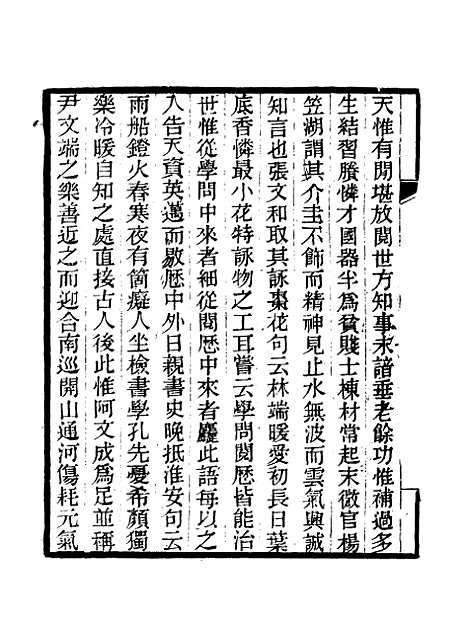 天惟有閒堪放閱世方知事未諳垂老餘功惟補過多
生結習賸憐才國器半爲貧賤士棟材常起末微官楊
笠湖謂其介圭不飾而精神見止水無波而雲氣興誠
知言也張文和取其詠棗花句云林端暖愛初長日葉
底香憐最小花特詠物之工耳嘗云學問閱歷皆能治
世惟從學問中來者細從閱歷中來者麤此語每以之
入告天資英邁而敭歷中外日親書史晚抵淮安句云
雨船鐙火春寒夜有箇癡人坐檢書學孔先憂希顏獨
樂冷暖自知之處直接古人後此惟阿文成爲足並稱
尹文端之樂善近之而迎合南巡開山通河傷耗元氣